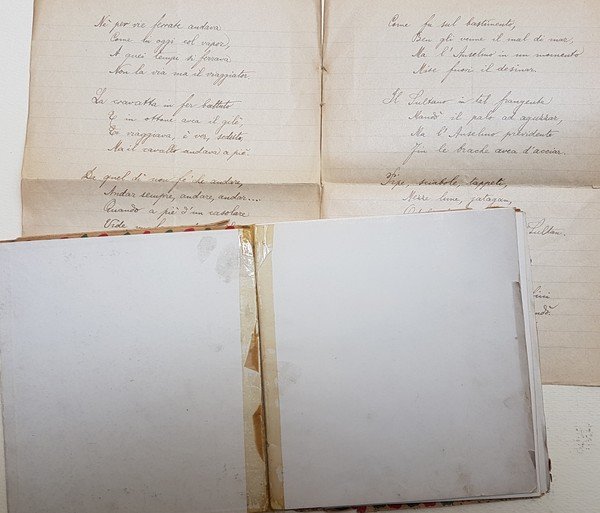 Nè per vie ferrate andava
Come in oggi col vapor,
A quei tempi si ferrava
Non la via ma il viaggiator.
La cravatta in fer battuto
E in ottone avea il gilè
Ei viaggiava, è ver, seduto
Ma il cavallo andava a piè
Da quel dì non fè che andare,
Andar sempre, andare, andar...
Quando a piè d'un casolare
Vide
Come fu sul bastimento,
Ben gli venne il mal di mar,
Ma l'Anselmo in un momento
Mise fuori il desinar.
Il Sultano in tal frangente
Mandò il palo ad aguzzar,
Ma l'Anselmo previdente
Fin le brache avea d'acciar.
Pipe, sciabole, tappeti,
Mezze lune, jatagan,
Sultan.